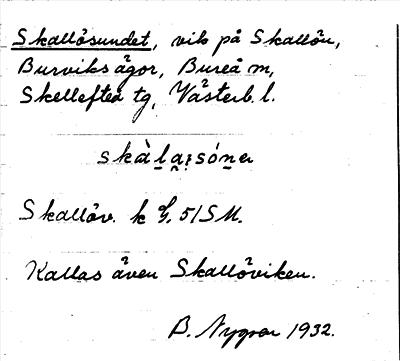 Skallösundet, vik på Skallön,
Burviks ägor, Bureå m,
Skellefteå tg, Västerb. l.
skàla̯:són̯er
Skallöv. k G. 51 SM.
Kallas även Skallöviken.
B. Nygren 1932.